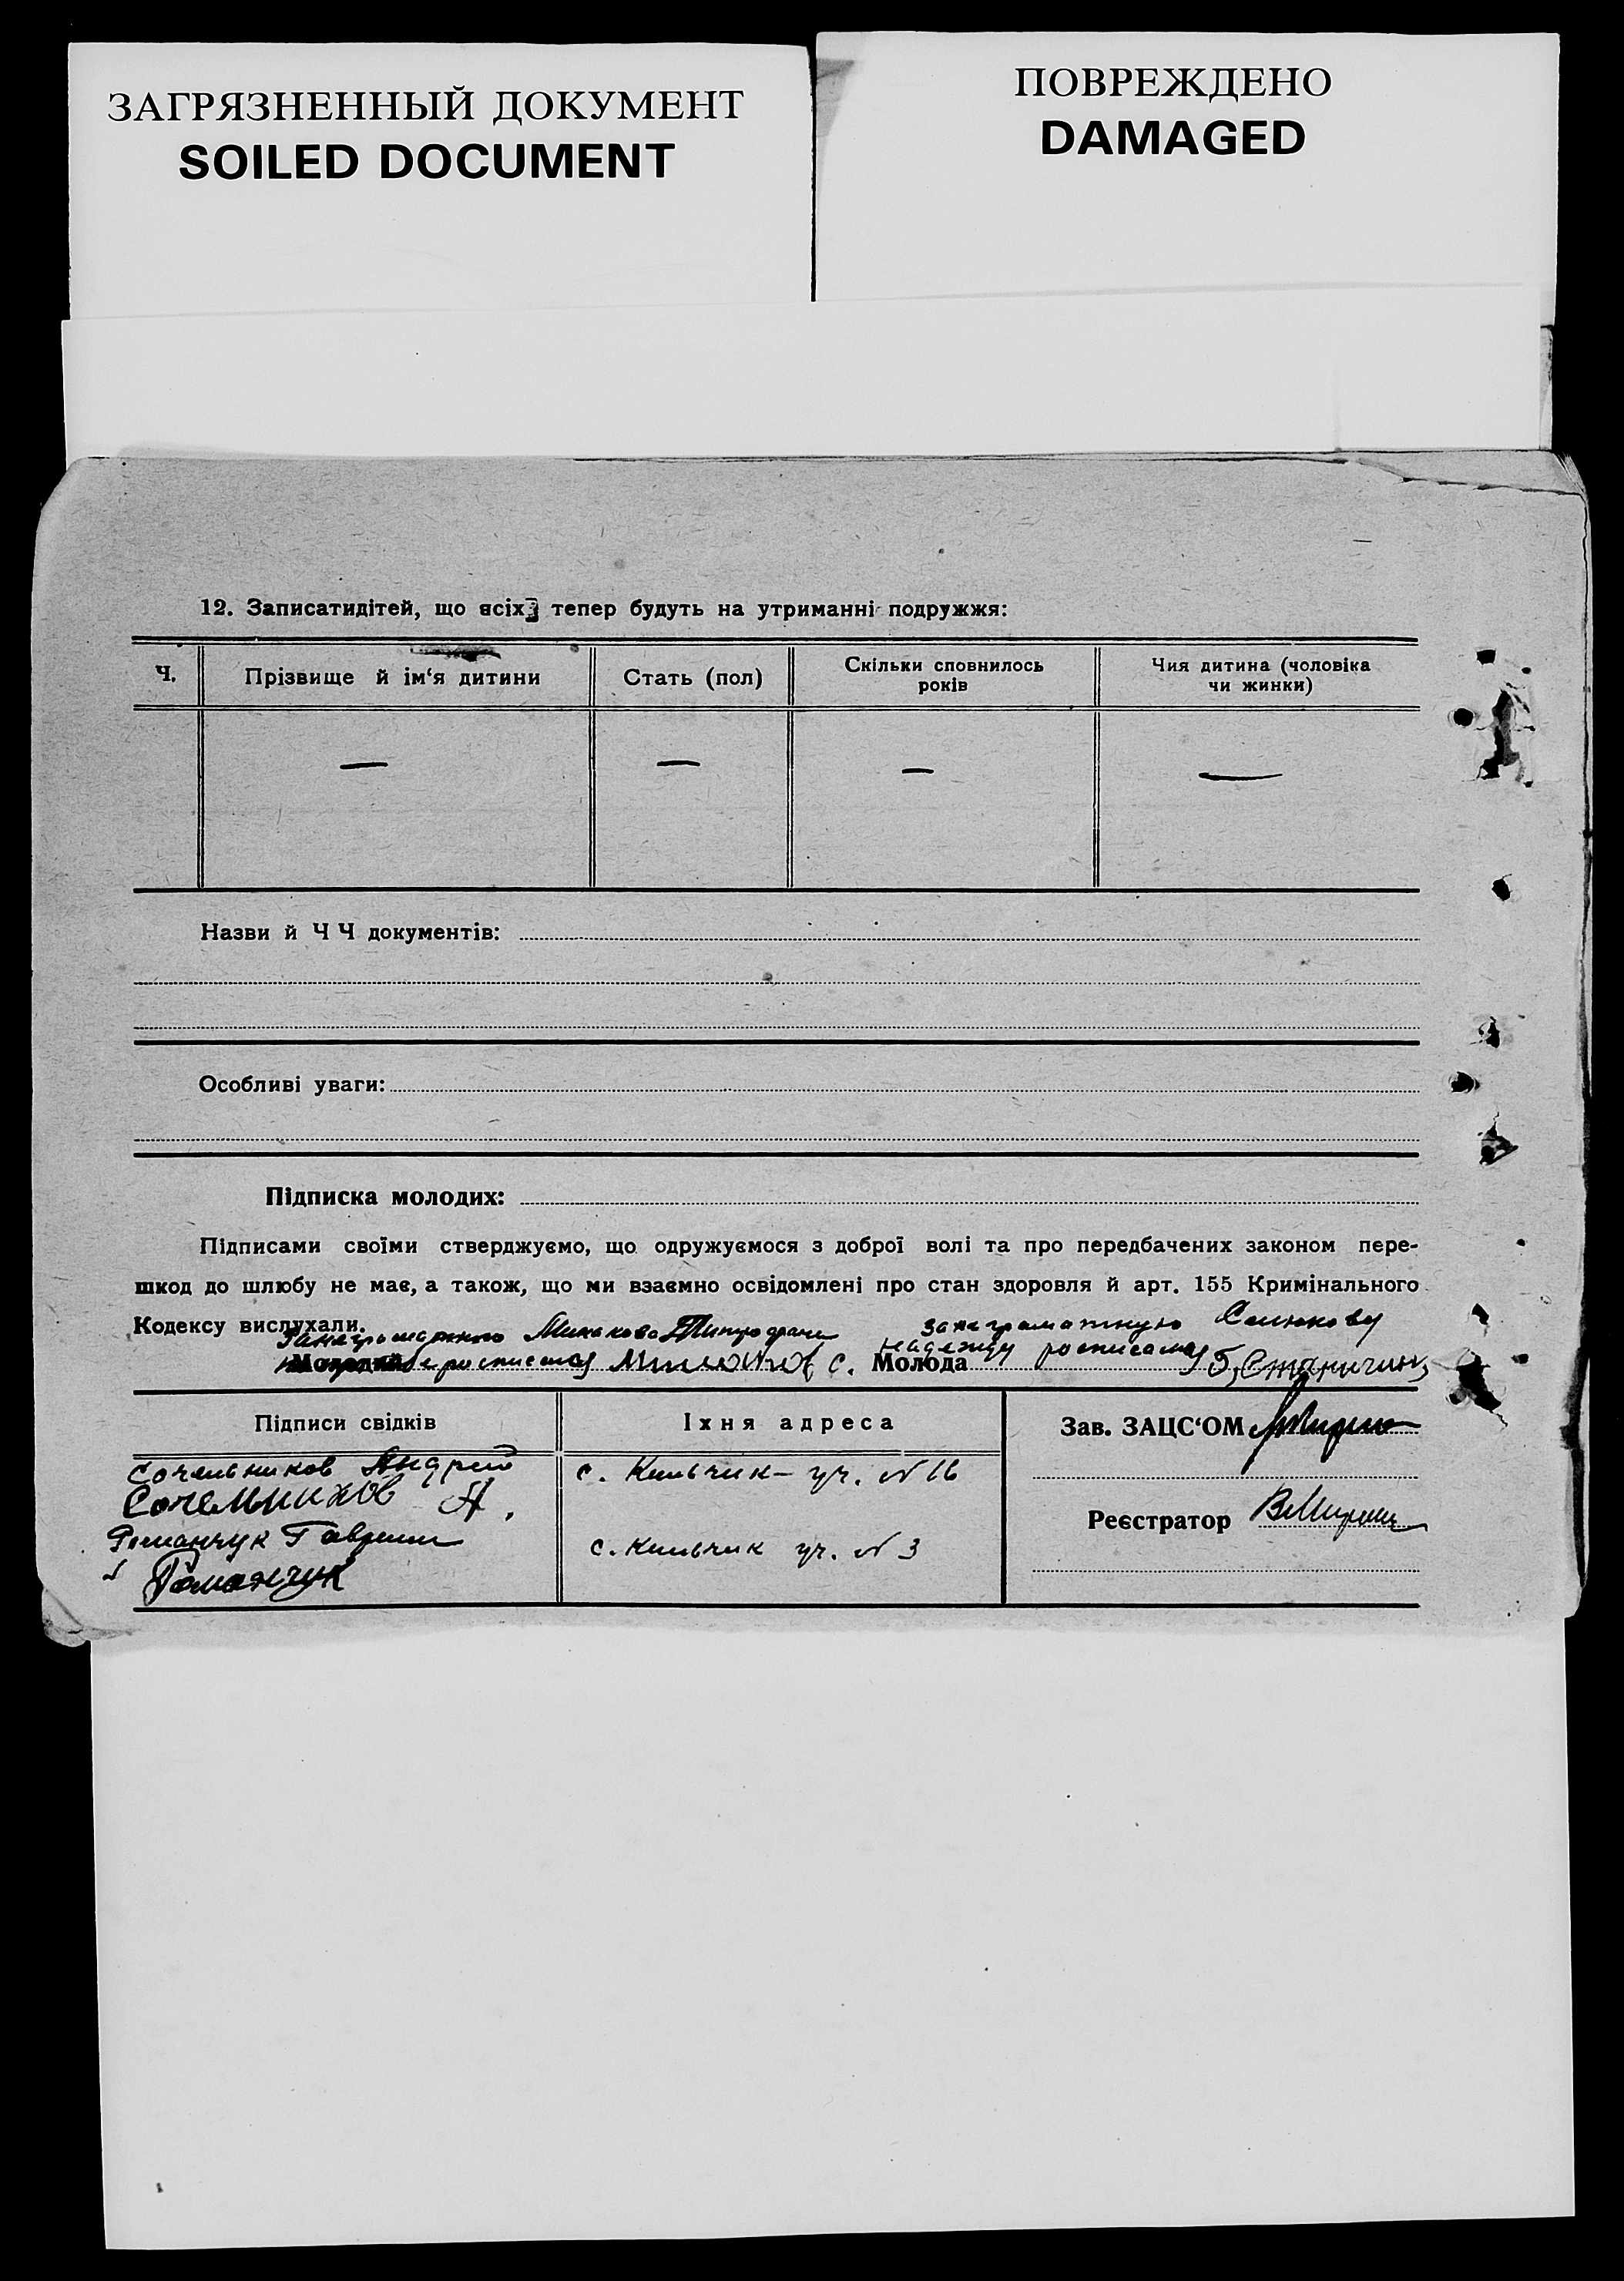 ЗАГРЯЗНЕННЫЙ ДОКУМЕНТ
SOILED DOCUMENT
ПОВРЕЖДЕНО
DAMAGED
12. Записатидітей, що всіх тепер будуть на утриманні подружжя:
Ч.
Прізвище й ім‘я дитини
Стать (пол)
Скільки сповнилось
років
Чия дитина (чоловіка
чи жинки)
— — — —
Назви й Ч Ч документів:
Особливі уваги:
Підписка молодих:
Підписами своїми стверджуємо, що одружуємося з доброї волі та про передбачених законом пере-
шкод до шлюбу не має, а також, що ми взаємно освідомлені про стан здоровля й арт. 155 Кримінального
Кодексу вислухали.
Минакова
росписался с.
занеграматную
Молода Надежду росписался
Підписи свідків
Їхня адреса
Сочельников Андрей
Сочельников А.
с. Кильчик – уч. № 16
Романчук Гаврил
Романчук
с. Кильчик уч. № 3
Зав. ЗАЦС‘ОМ
Реєстратор